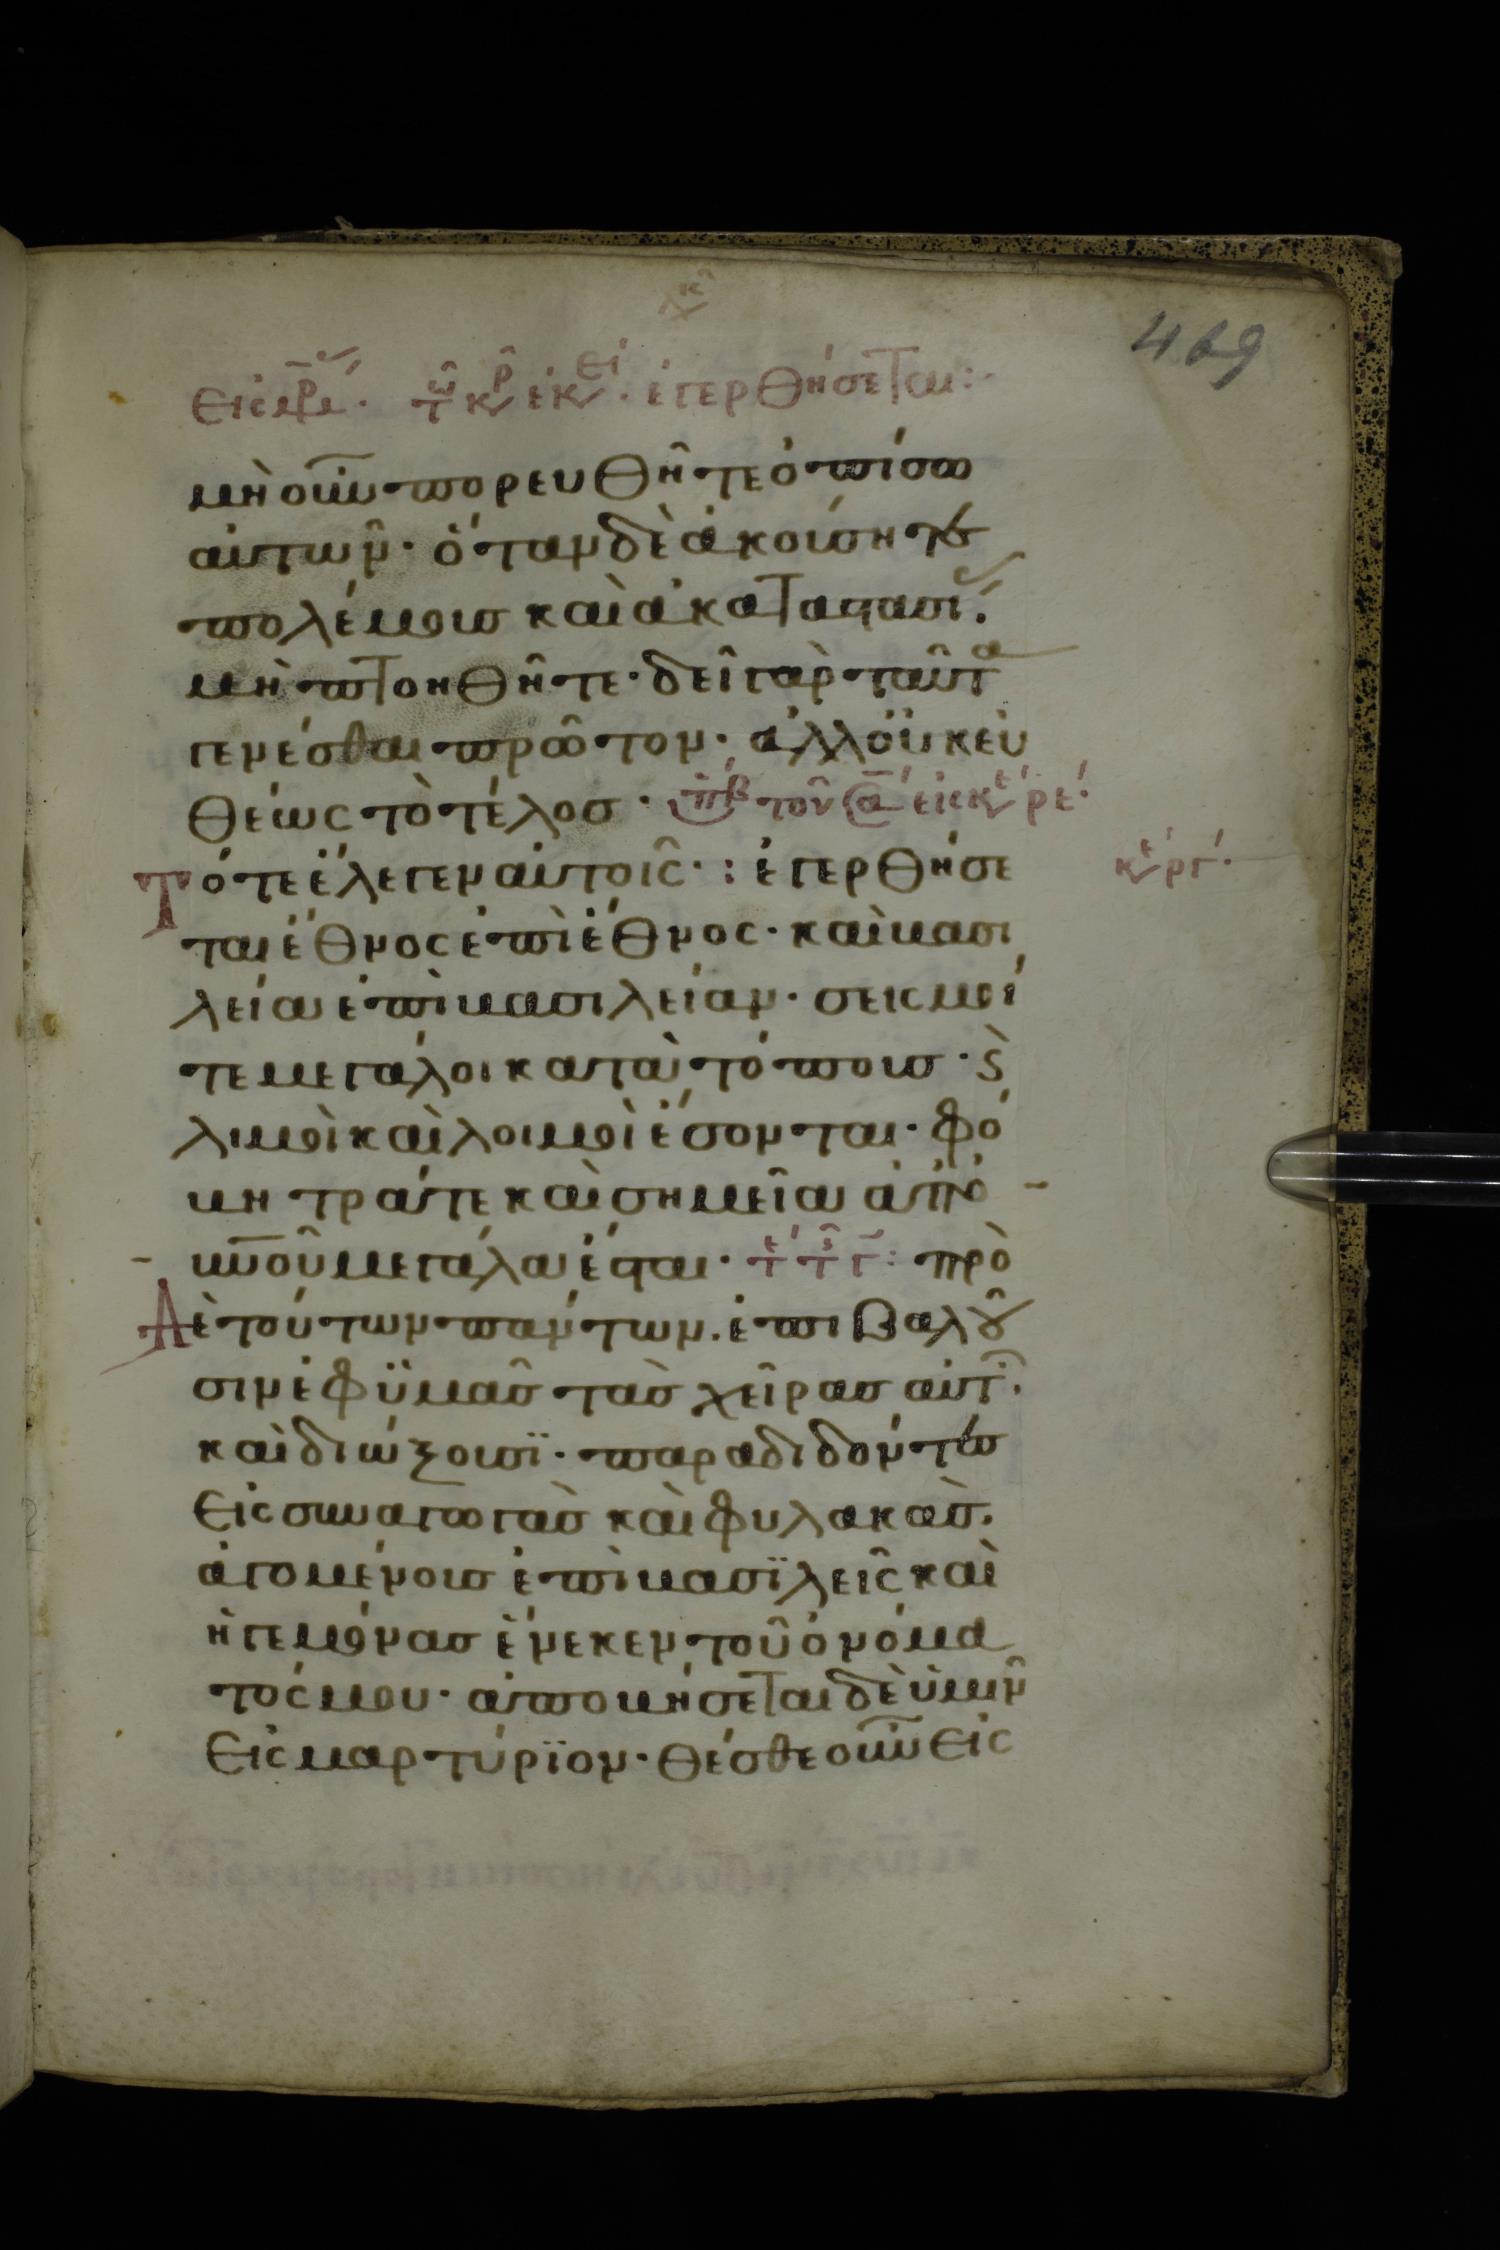 469
ἐγερθήσεται:
μὴ οὖν πορευθῆτε ὀπίσω
αὐτῶν· ὅταν δὲ ἀκούσητε
πολέμους καὶ ἀκαταστασί
μὴ πτοηθῆτε· δεῖ γὰρ ταῦτα
γενέσθαι πρῶτον· ἀλλ οὐκ εὐ
θέως τὸ τέλοσ·
Τότε ἔλεγεν αὐτοῖς· : ἐγερθήσε
ται ἔθνος ἐπὶ ἔθνος· καὶ βασι
λεία ἐπὶ βασιλείαν· σεισμοί
τε μεγάλοι κατὰ τόπους· ϛ̀
λιμοὶ καὶ λοιμοὶ ἔσονται· φό
βητρά τε καὶ σημεῖα ἀπό
οὐνοῦ μεγάλα ἔσται· πρὸ
Δὲ τούτων πάντων. ἐπιβαλοῦ
σιν ἐφ ὑμᾶς τὰς χεῖρας αὐτ
καὶ διώξουσϊ· παραδιδόντες
Εἰς συναγωγὰς καὶ φυλακὰς.
ἀγομένους ἐπὶ βασϊλεῖς καὶ
ἡγεμόνας ἕνεκεν τοῦ ὀνόμα
τός μου· ἀποβήσεται δὲ ὑμῖν
Εἰς μαρτύρϊον· θέσθε οὖν Εἰς